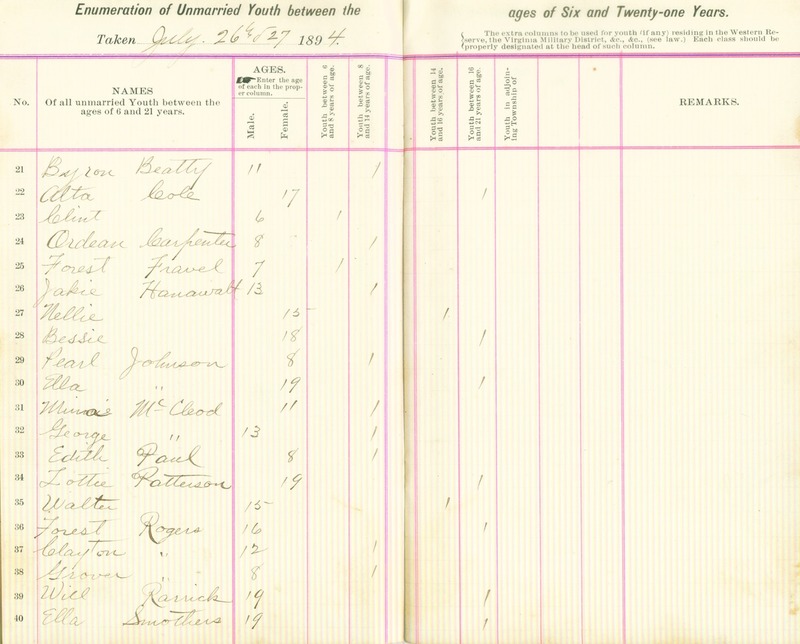 Enumeration of Unmarried Youth between the ages of Six and Twenty-one Years.
Taken July. 26 & 27 1894.
The extra columns to be used for youth (if any) residing in the Western Re-
serve, the Virginia Military District, &c., &c., (see law.) Each class should be
properly designated at the head of such column.
No.
NAMES
Of all unmarried Youth between the
ages of 6 and 21 years.
AGES.
Enter the age
of each in the prop-
er column.
Male.
Female.
Youth between 6
and 8 years of age.
Youth between 8
and 14 years of age.
Youth between 14
and 16 years of age.
Youth between 16
and 21 years of age.
Youth in adjoin-
ing Township of
REMARKS.
21 Byron Beatty 11 /
22 Alta Cole 17 /
23 Clint 6 /
24 Ordean Carpenter 8 /
25 Forest Fravel 7 /
26 Jakie Hanawalt 13 /
27 Nellie 15 /
28 Bessie 18 /
29 Pearl Johnson 8 /
30 Ella " 19 /
31 Minnie McCleod 11 /
32 George " 13 /
33 Edith Paul 8 /
34 Lottie Patterson 19 /
35 Walter 15 /
36 Forest Rogers 16 /
37 Clayton " 12 /
38 Grover " 8 /
39 Will Rarrick 19 /
40 Ella Smothers 19 /